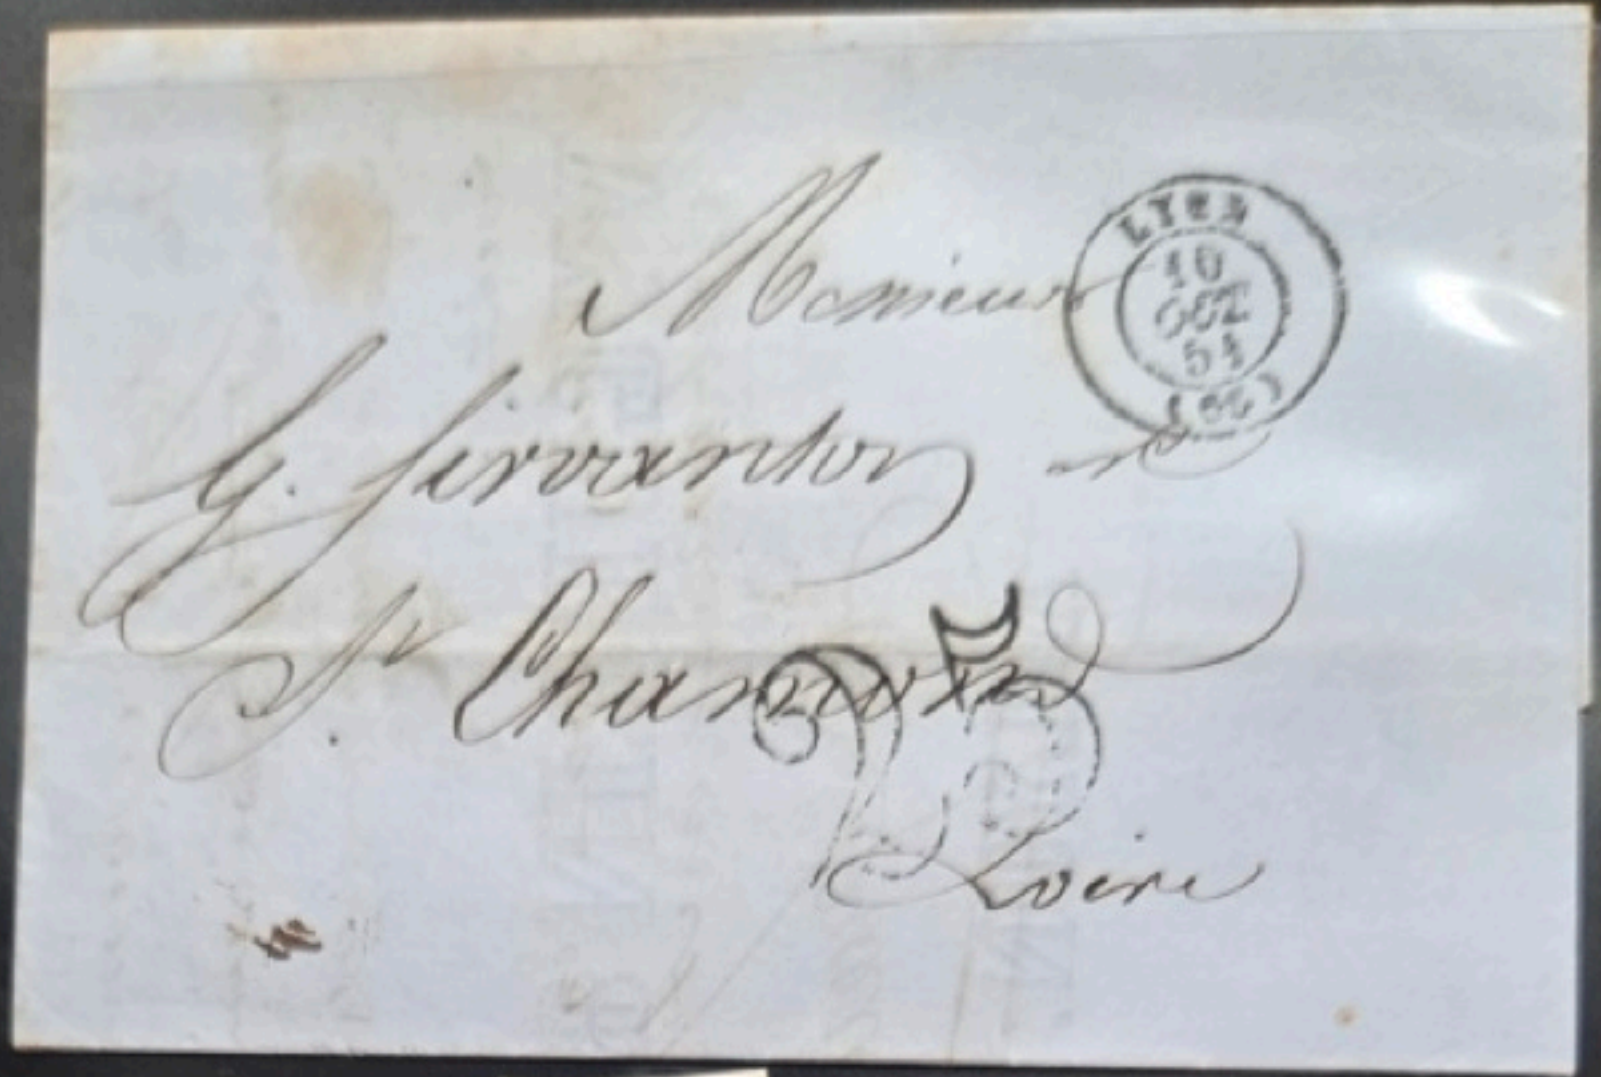 LYON
10
OCT.
51
(68)
Monsieur
G. Servanton
St Chamond
25
Loire